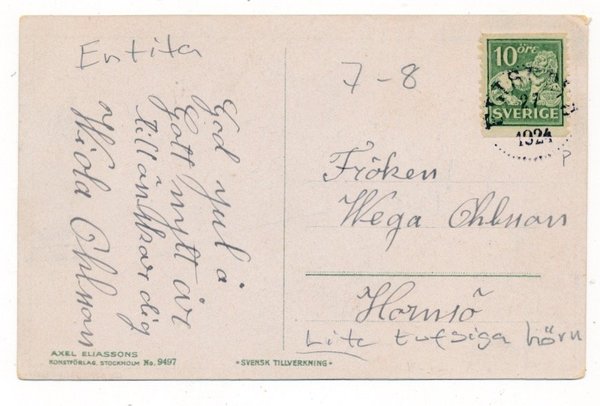 Entita
God jul å
Gott nytt år
tillönskar dig
Wiola Ohlsson
7-8
10 ÖRE
SVERIGE
27
1924
P
Fröken
Wega Ohlsson
Hornsö
Lite tufsiga hörn
AXEL ELIASSONS
KONSTFÖRLAG. STOCKHOLM No. 9497
• SVENSK TILLVERKNING •